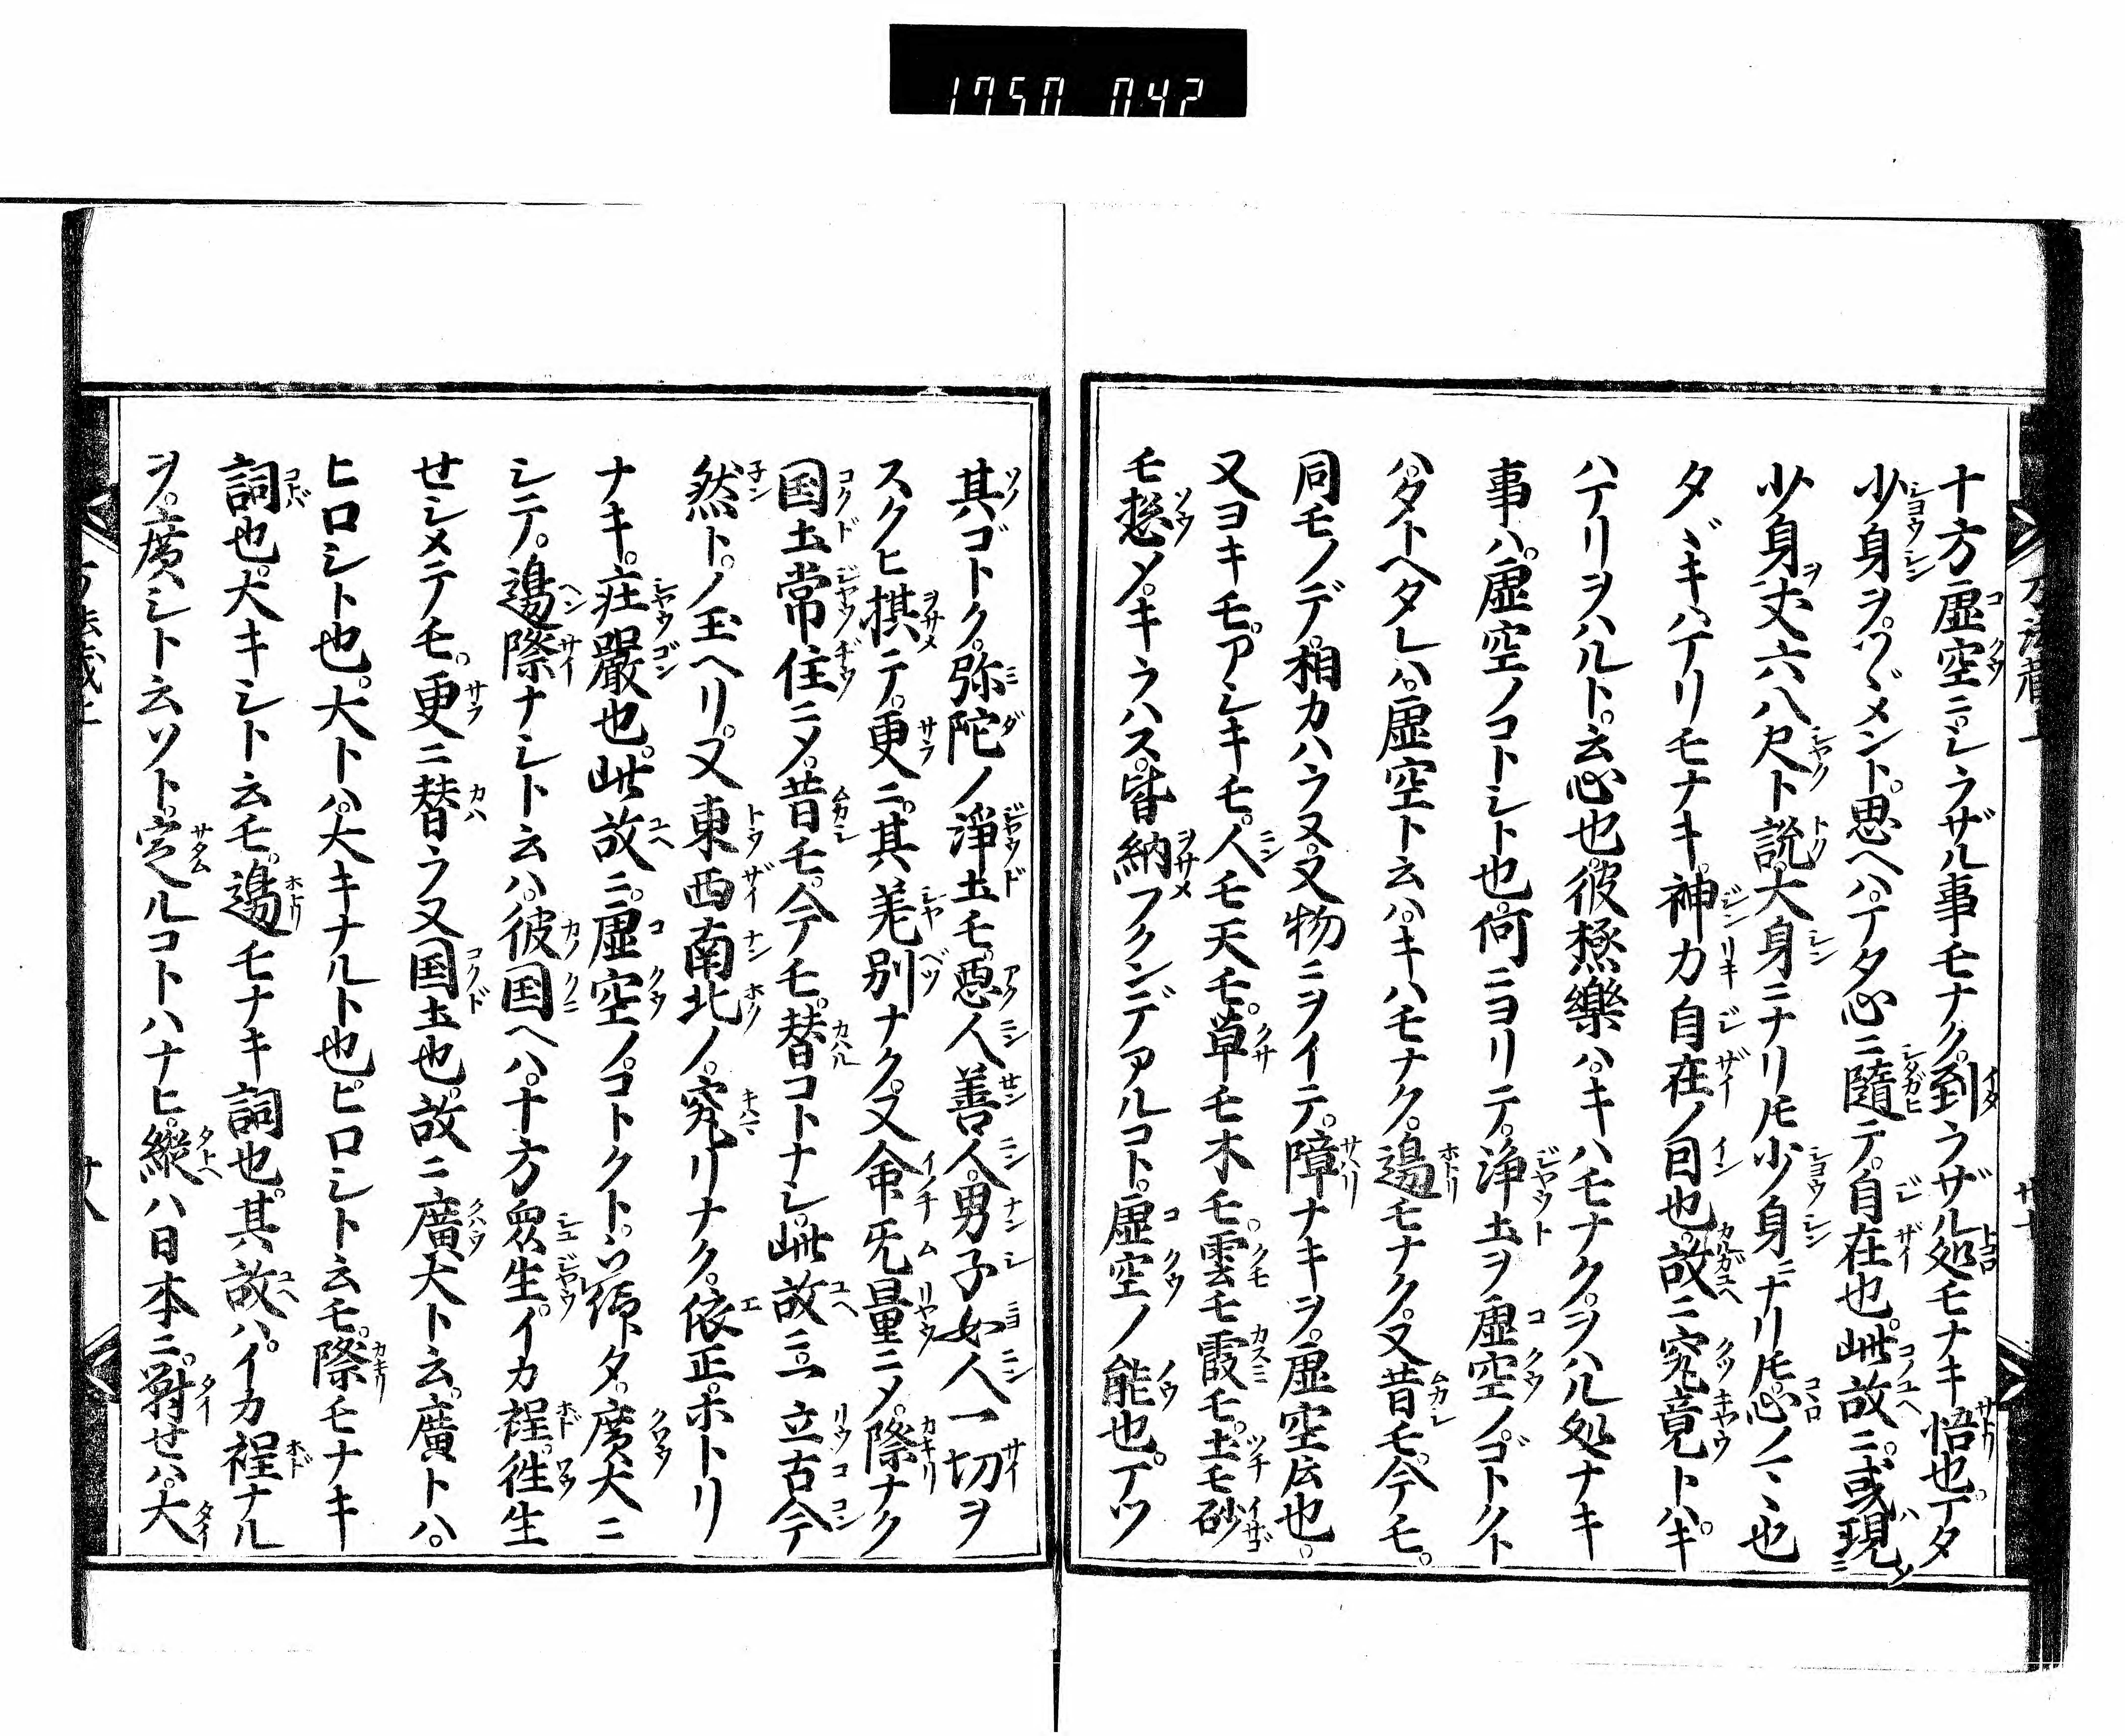 1750 042
十方虚空ニ。シラザル事モナク。到ラザル処モナキ悟也。アタ
少身ヲ。ツヾメント。思ヘハ。アタ心ニ隨テ。自在也。此故ニ。或現
少身丈六八尺ト説。大身ニナリ𪜈少身ニナリ𪜈。心ノマヽ也
タヾキハテリモナキ。神力自在ノ囙也。故ニ究竟トハ。キ
ハテリヲハルト。云心也。彼極樂ハ。キハモナク。ヲハル処ナキ
事ハ。虚空ノコトシト也。何ニヨリテ。浄土ヲ虚空ノゴトクト
ハ。タトヘタレハ。虚空ト云ハ。キハモナク。邊モナク。又昔モ。今モ。
同モノデ。相カハラヌ。又物ニヲイテ。障ナキヲ。虚空云也。
又ヨキモ。アシキモ。人モ天モ。草モ木モ。雲モ霞モ。土モ砂
モ惣〆。キラハス。皆納フクンデアルコト。虚空ノ能也。アツ
其ゴトク。弥陀ノ浄土モ。惡人善人。男子女人一切ヲ
スクヒ棋テ。更ニ。其差別ナク。又命无量ニ〆。際ナク
国土常住ニ〆。昔モ。今モ。替コトナシ。此故ニ。亘立古今
然ト。ノ玉ヘリ。又東西南北ノ。究リナク。依正。ホトリ
ナキ。荘嚴也。此故ニ。虚空ノ。コトクト。タ。廣大ニ
シテ。邊際ナシト云ハ。彼国ヘハ。十方衆生。イカ程。徃生
せシメテモ。更ニ替ラヌ国土也。故ニ廣大ト云。廣トハ。
ヒロシト也。大トハ。大キナルト也。ヒロシト云モ。際モナキ
詞也。大キシト云モ。邊モナキ詞也。其故ハ。イカ程ナル
ヲ。廣シト云ソト。定ルコトハナヒ。縱ハ日本ニ。對せハ。大